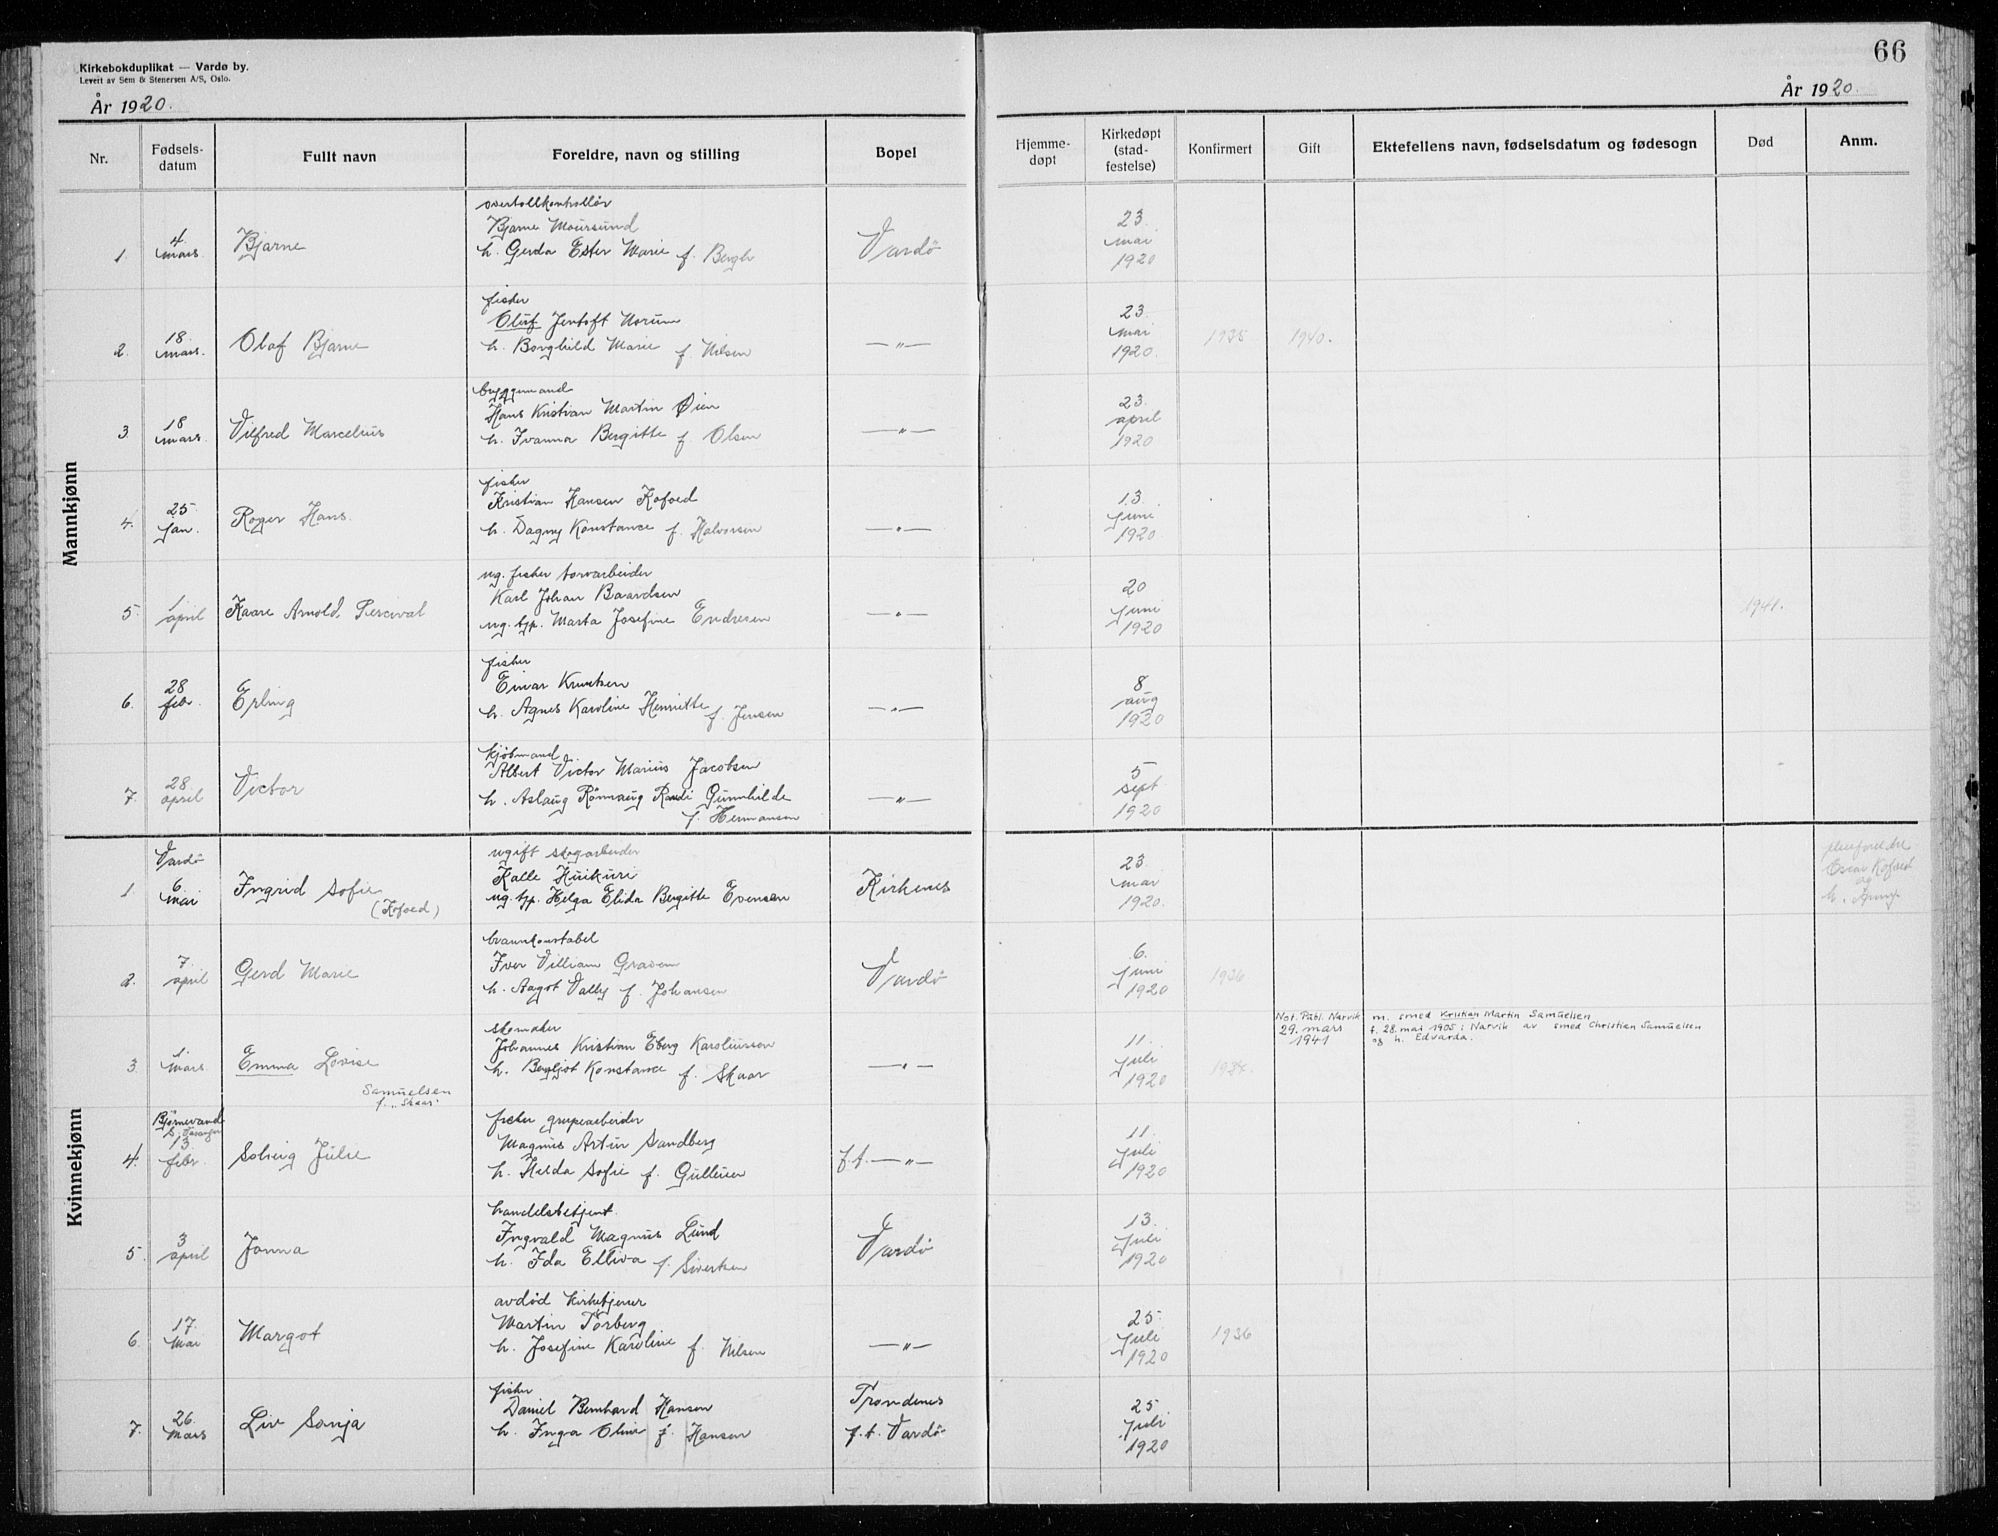 66
Kirkebokduplikat — Vardø by.
Levert av Sem & Stenersen A/S, Oslo.
År 1920.
År 1920.
Nr.
Fødsels-
datum
Fullt navn
Foreldre, navn og stilling
Bopel
Hjemme-
døpt
Kirkedøpt
(stad-
festelse)
Konfirmert
Gift
Ektefellens navn, fødselsdatum og fødesogn
Død
Anm.
Mannkjønn
1.
4
mars.
Bjarne
overtollkontrollør
Bjarne Moursund
h. Gerda Ester Marie f. Bergh
Vardö
23.
mai
1920
2.
18
mars.
Olaf Bjarne
fisker
Oluf Jentoft Norum
h. Borghild Marie f. Nilsen
— " —
23.
mai
1920.
1935
1940.
3.
18
mars.
Vilfred Marcelius
byggemand
Hans Kristian Martin Øien
h. Ivanna Bergitte f. Olsen
— " —
23.
april
1920
4.
25
jan.
Roger Hans.
fisker
Kristian Hansen Kofoed
h. Dagny Konstance f. Halvorsen
— " —
13.
juni
1920
5.
1
april
Kaare Arnold Percival
ug. fisker torvarbeider
Karl Johan Baardsen
ug. tjp. Marta Josefine Endresen
— " —
20
juni
1920
1941.
6.
28
febr.
Erling
fisker
Einar Knutsen
h. Agnes Karoline Henriette f. Jensen
— " —
8
aug
1920
7.
28
april
Victor
kjöbmand
Albert Victor Marius Jacobsen
h. Aslaug Rönnaug Randi Gunnhilde
f. Hermansen
— " —
5
sept.
1920
Kvinnekjønn
1.
Vardö
6.
mai
Ingrid Sofie
(Kofoed)
ugift skogarbeider
Kalle Huikuri
ug. tjp. Helga Elida Bergitte Evensen
Kirkenes
23.
mai
1920.
Einar Kofoed
og
h.
2.
7.
april
Gerd Marie
brannkonstabel
Iver Villiam Graven
h. Aagot Vally f. Johansen
Vardö
6.
juni
1920
1936
3.
1
mars.
Emma Lovise
Samuelsen
f. "Skaar"
skomaker
Johannes Kristian Eberg Karoliussen
h. Bergljot Konstance f. Skaar
— " —
11.
juli
1920
1934.
Not. Publ. Narvik
29. mars
1941
m. smed Kristian Martin Samuelsen
f. 28. mai 1905 i Narvik av smed Christian Samuelsen
og h. Edvarda.
4.
Björnevand
S. Varanger
13.
febr.
Solveig Julie
fisker grubearbeider
Magnus Artur Sandberg
h. Hilda Sofie f. Gulliksen
f.t. — " —
11.
juli
1920
5.
3
april
Jonna
handelsbetjent.
Ingvald Magnus Lund
h. Ida Elliva f. Sivertsen
Vardö
13.
juli
1920
6.
17.
mai
Margot
avdöd kirketjener
Martin Torberg
h. Josefine Karoline f. Nilsen
— " —
25
juli
1920
1936
7.
26.
mars
Liv Sonja
fisker
Daniel Bernhard Hansen
h. Inga Oline f. Hansen
Trondenes
f.t. Vardö
25
juli
1920